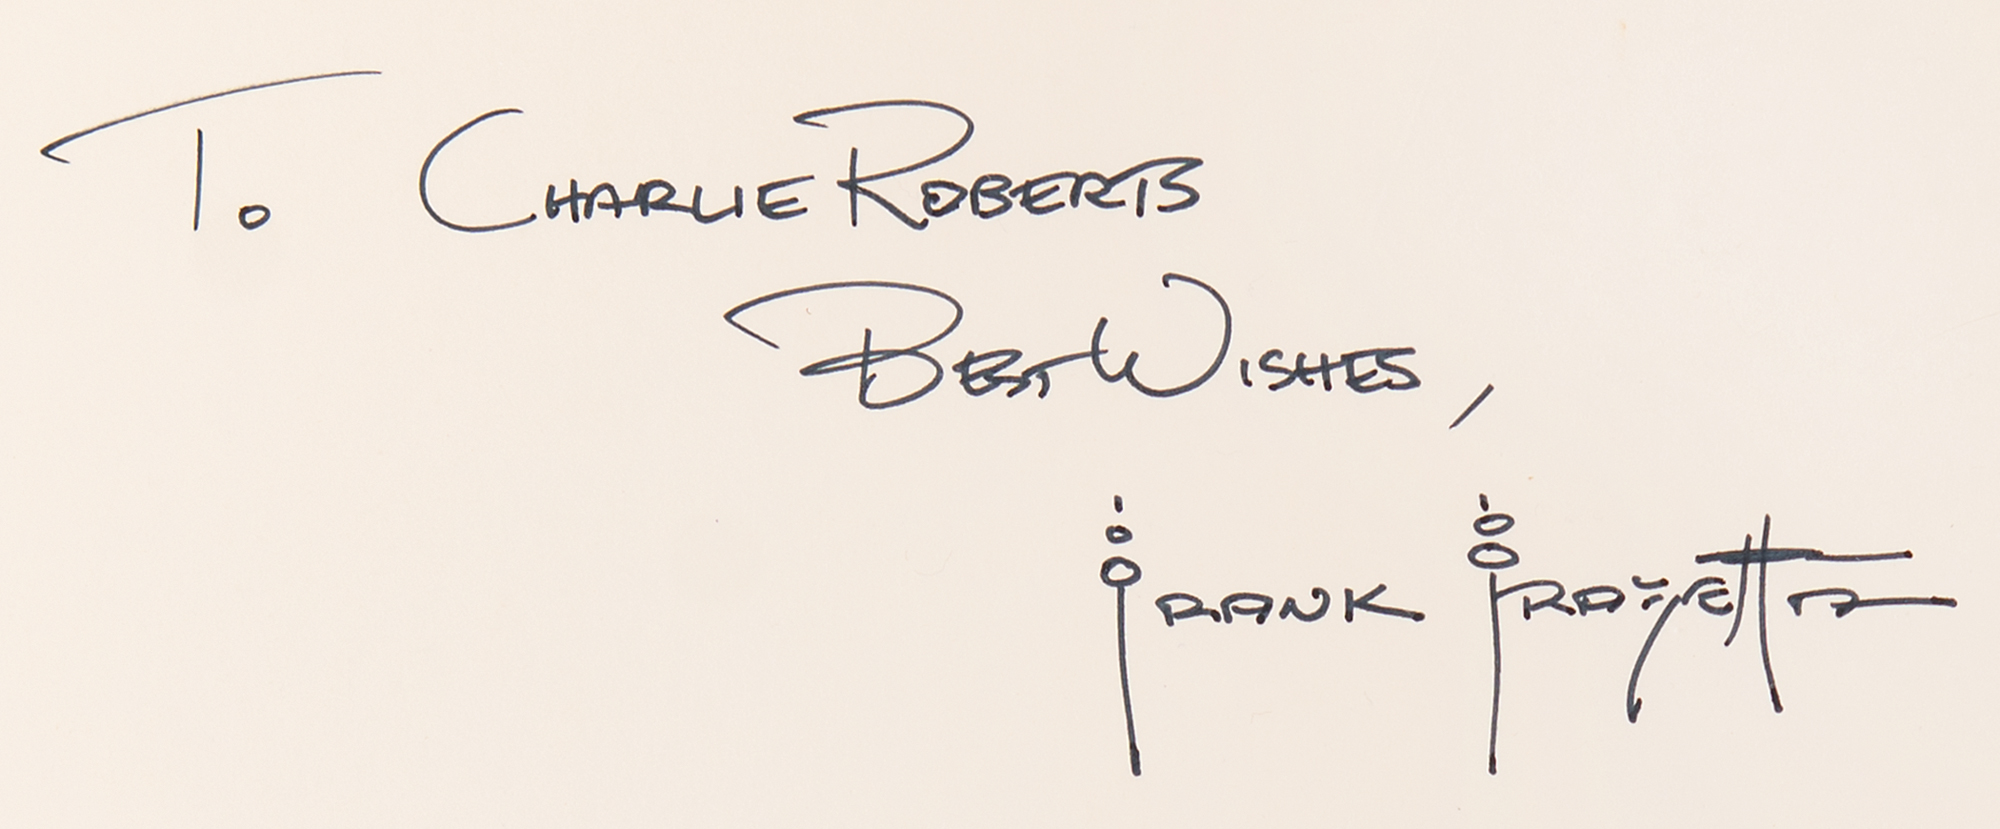 To Charlie Roberts
Best Wishes,
Frank Frazetta